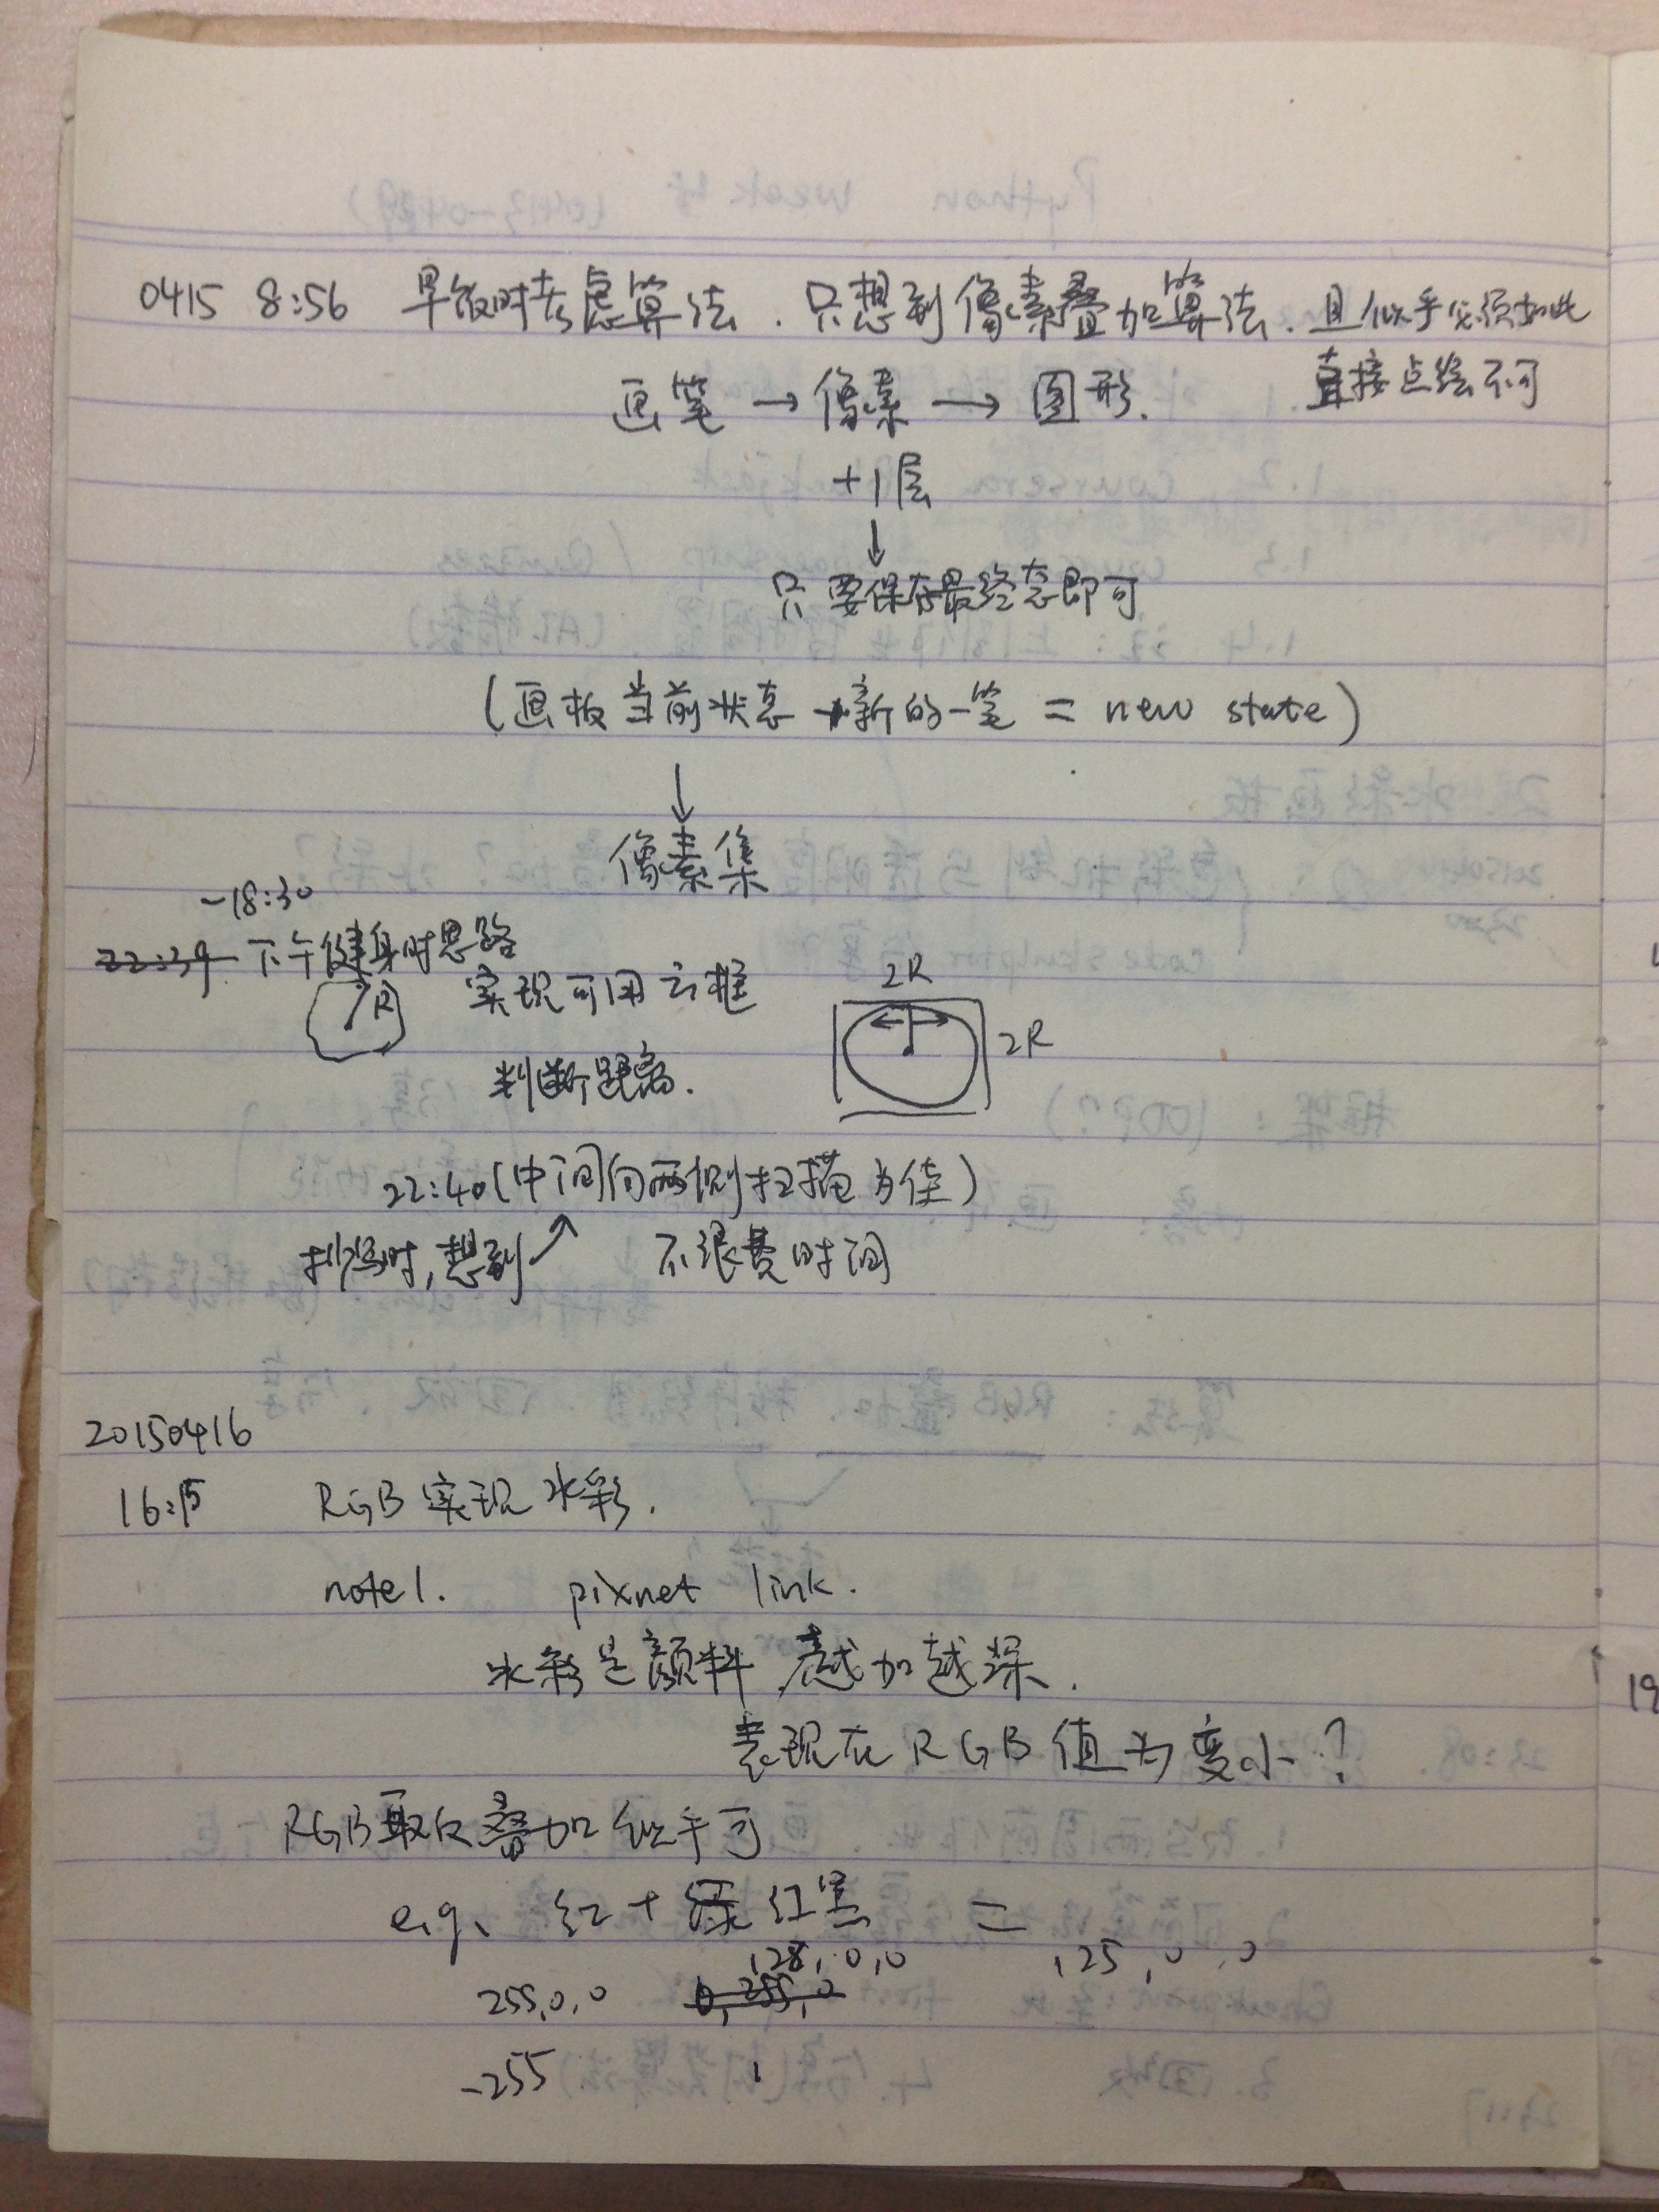 0415 8:56 早饭时考虑算法.只想到像素叠加算法.且似乎必须如此
直接点绘不可
画笔→像素→图形.
+1层
↓
只要保存最终态即可
(画板当前状态+新的一笔 = new state)
↓
像素集
~18:30
22:39 下午健身时思路
R 实现可用方框
判断距离.
2R
2R
22:40(中间向两侧扫描为佳)
抄写时,想到↗ 不浪费时间
20150416
16:15 RGB实现水彩.
note1. pixnet link.
水彩是颜料,越加越深.
表现在RGB值为变小?
RGB取反叠加似乎可
e.g. 红 + 绿 红黑 =
128,0,0 125,0,0
255,0,0 0,255,0
-255